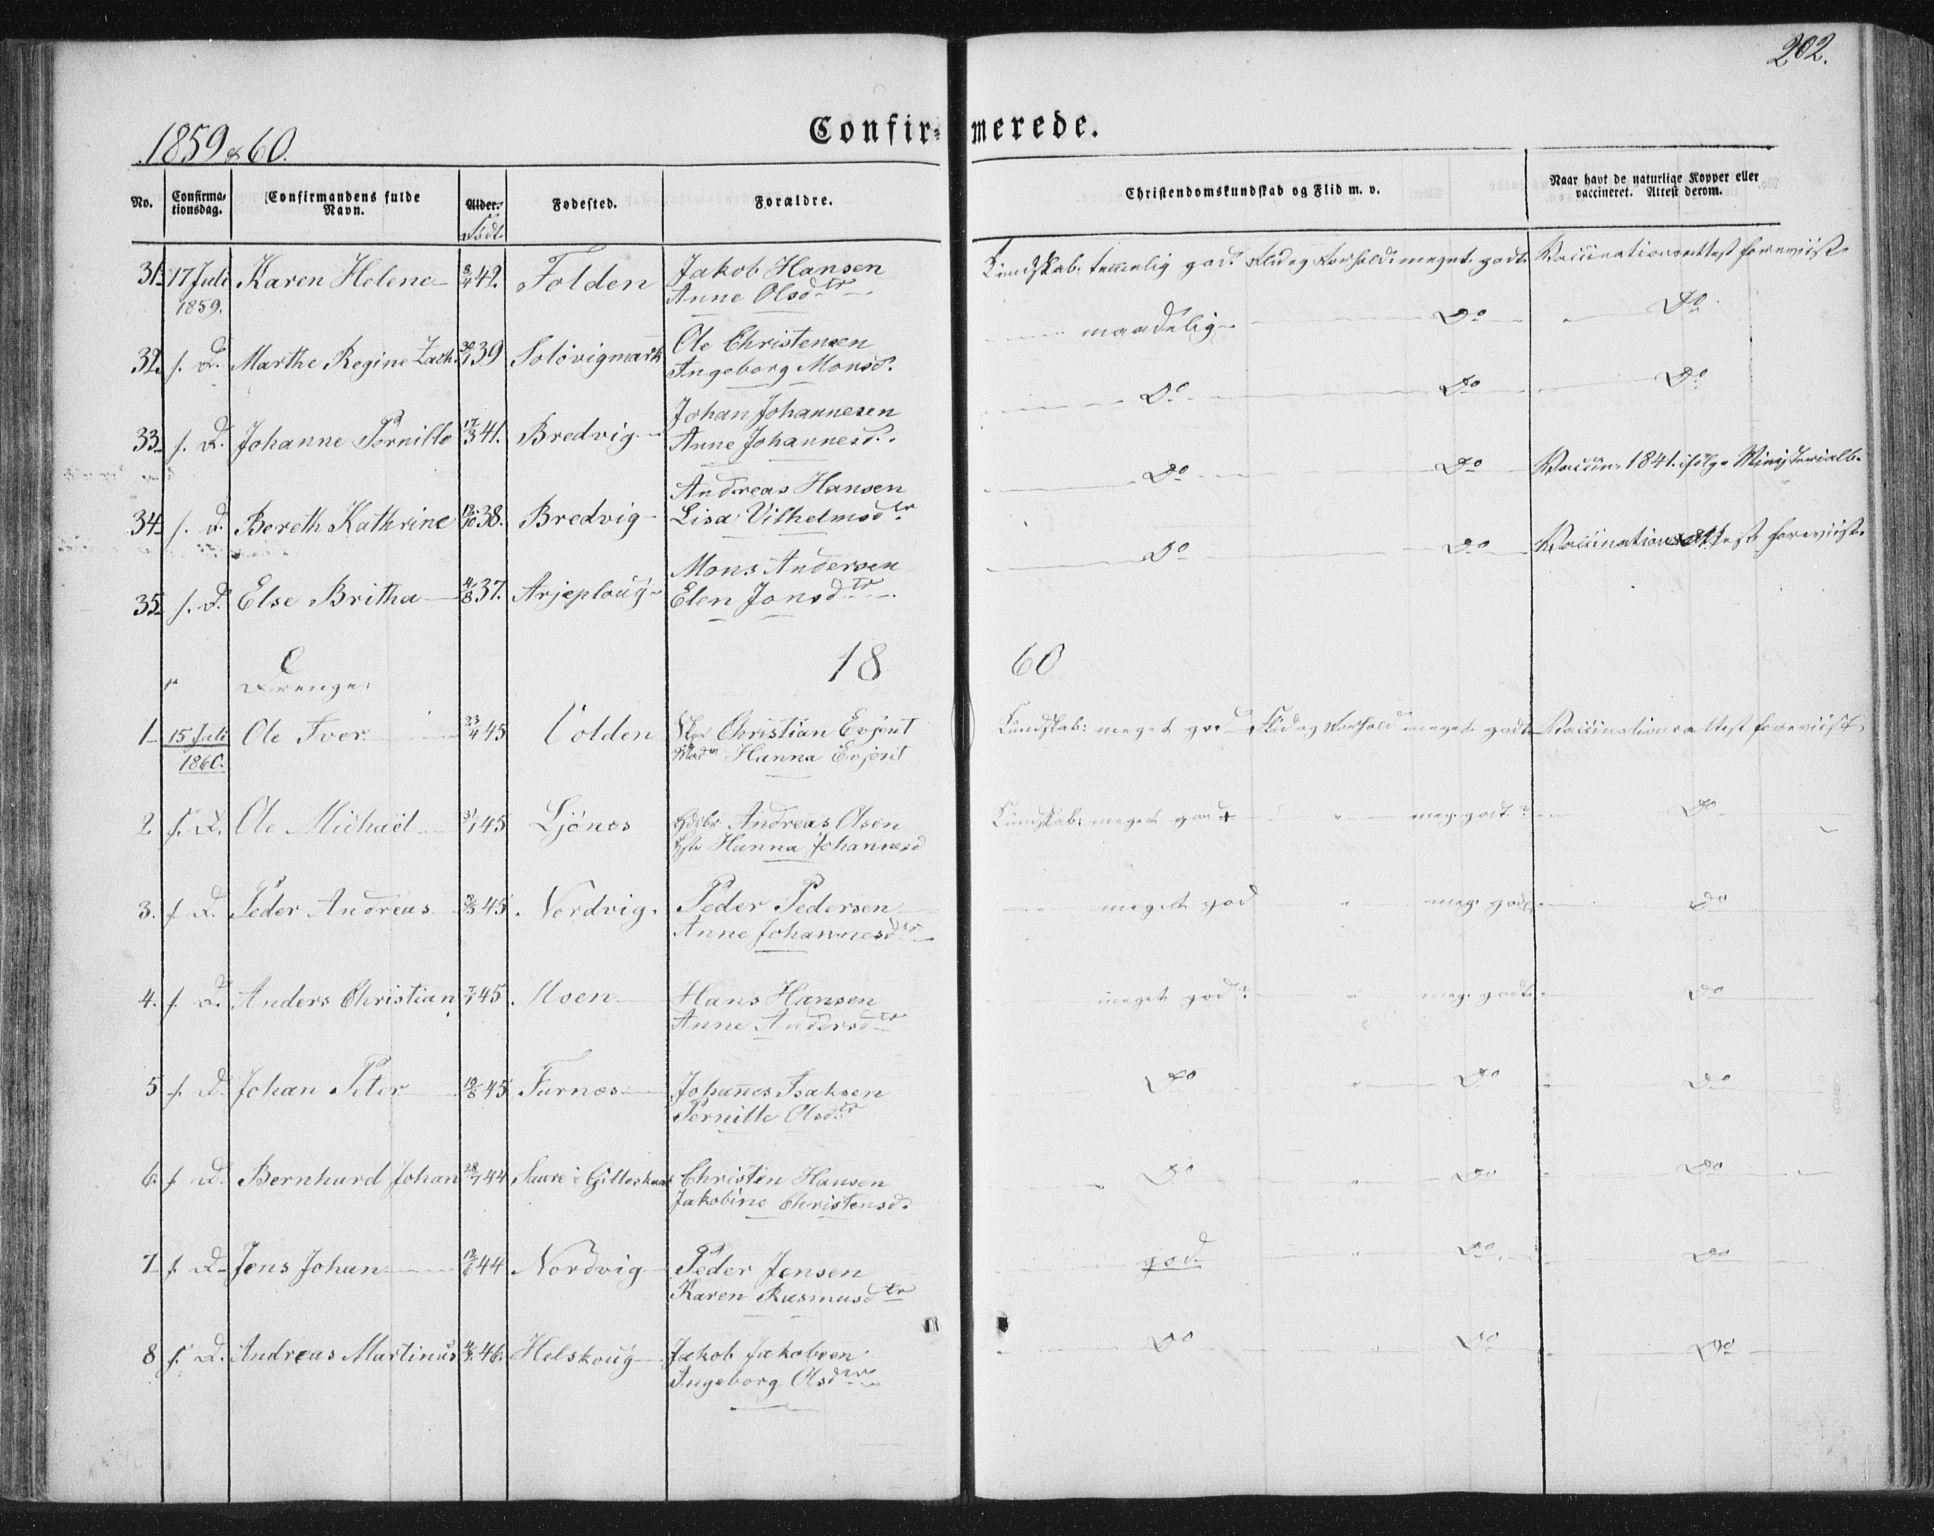 202.
Confirmerede.
1859 & 60.
No. Confirmationsdag. Confirmandens fulde Navn. Alder. Født. Fødested. Forældre. Christendomskundskab og Flid m. v. Naar havt de naturlige Kopper eller vaccineret. Attest derom.
31. 17 Juli 1859. Karen Helene 8/4 42. Folden Jakob Hansen Kundskab: temmelig god. Flid og Forhold: meget godt. Vaccinationsattest foreviist
Anne Olsdtr
32. f. D. Marthe Regine Zach. 30/1 39 Soløvigmark Ole Christensen maadelig Do Do
Ingeborg Monsd.
33. f. D. Johanne Pernille 17/3 41. Bredvig Johan Johannesen Do Do Do
Anne Johannesd.
34. f. D. Bereth Kathrine 12/10 38. Bredvig Andreas Hansen Do Do Vaccin. 1841. ifølge Ministerialb.
Lisa Vilhelmsdtr
35. f. D. Else Britha 4/8 37. Arjeploug Mons Andersen Do Do Vaccinationsattest foreviist.
Elen Jonsdtr
18 60
Drenge:
1 15 Juli 1860. Ole Iver 23/4 45 Volden Christian Evjent Kundskab: meget god Flid og Forhold meget godt Vaccinationsattest foreviist
Hanna Evjent
2. f. D. Ole Michael 31/1 45 Ljönes Gdsbr Andreas Olsen Kundskab: meget god + " meg. godt? Do
Hanna Johannesd
3. f D. Peder Andreas 45 Nordvig. Peder Pedersen meget god " meg. godt Do
Anne Johannesdtr
4. f. D. Anders Christian 45. Moen Hans Hansen meget god? " meg. godt Do
Anne Andersdtr
5 f. D. Johan Peter 45 Furnæs Johañes Isaksen Do " Do Do
Pernille Olsdtr
6. f D. Bernhard Johan 28/7 44 Saure i Gilleskaal Christen Hansen Do " Do Do
Jakobine Christensd.
7 f. D. Jens Johan 44 Nordvig Peder Jensen god. " Do. Do
Karen Rasmusdtr
8 f. D. Andreas Martinus 46. Helskoug Jakob Jakobsen Do Do Do
Ingeborg Olsdtr